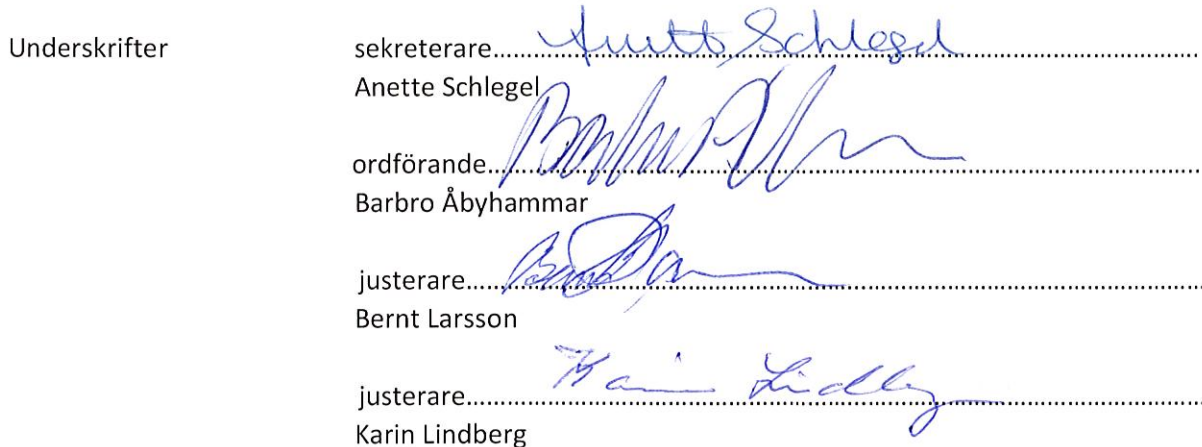 Underskrifter sekreterare.......Anette Schlegel.......
Anette Schlegel
ordförande.......
Barbro Åbyhammar
justerare.......
Bernt Larsson
justerare.......Karin Lindberg.......
Karin Lindberg